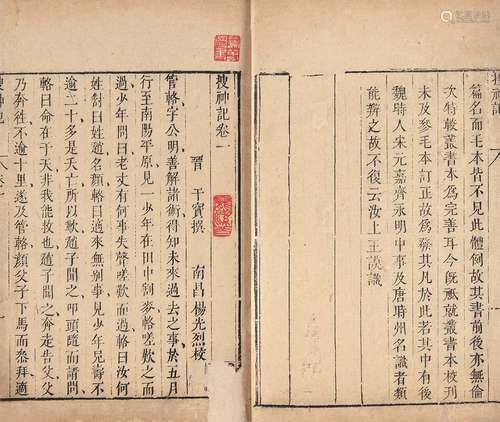 搜神記
篇名而毛本皆不見此體例故其書前後亦無倫
次特較叢書本為完善耳今旣祇就叢書本校刊
未及參毛本訂正故為臚其凡於此若其中有後
魏時人宋元嘉齊永明中事及唐時州名識者類
能辨之故不復云汝上王謨識
搜神記卷一
晉 干寶撰 南昌楊光烈校
管輅字公明善解諸術得知未來過去之事於五月
行至南陽平原見一少年在田中割麥輅嗟歎之而
過少年問曰老丈有何事失聲嗟歎而過輅曰汝何
姓對曰姓趙名顏輅曰適來無別事見少年足壽不
逾二十多是夭亡所以歎趙子聞之叩頭隨而請問
輅曰命在于天非我能故也趙子聞之奔走告父父
乃奔往不逾十里遂及管輅顏父子下馬而叅拜適
搜神記 卷一